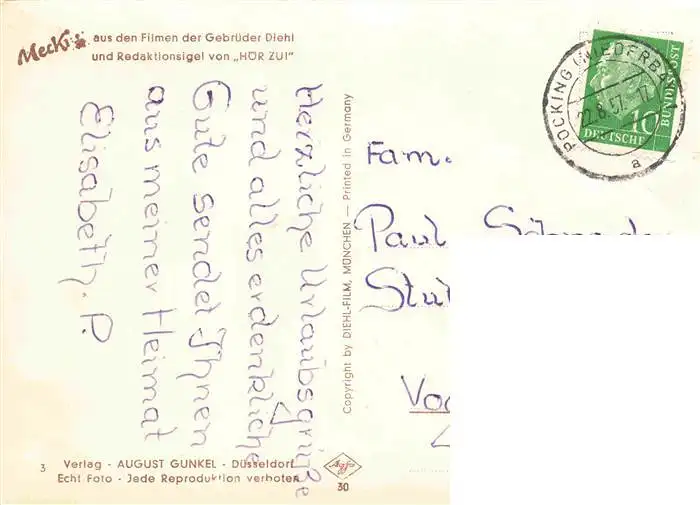 Mecki aus den Filmen der Gebrüder Diehl
und Redaktionsigel von „HÖR ZU!"
Herzliche Urlaubsgrüße
und alles erdenkliche
Gute sendet Ihnen
aus meiner Heimat
Elisabeth. P.
3 Verlag - AUGUST GUNKEL - Düsseldorf
Echt Foto - Jede Reproduktion verboten
Copyright by DIEHL-FILM, MÜNCHEN — Printed in Germany
Agfa
30
POCKING (NIEDERB
22.8.57.-17
a
10
DEUTSCHE
BUNDESPOST
Fam.
Paul